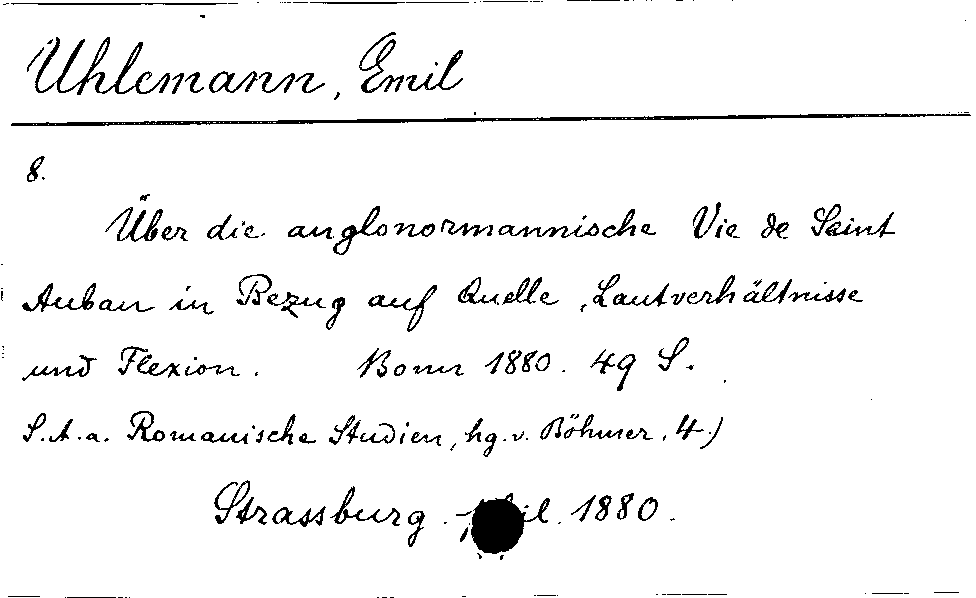 Uhlemann, Emil
8.
Über die anglonormannische Vie de Saint
Auban in Bezug auf Quelle, Lautverhältnisse
und Flexion. Bonn 1880. 49 S.
S.A.a. Romanische Studien, hg. v. Böhmer, 4.)
Strassburg. 1880.